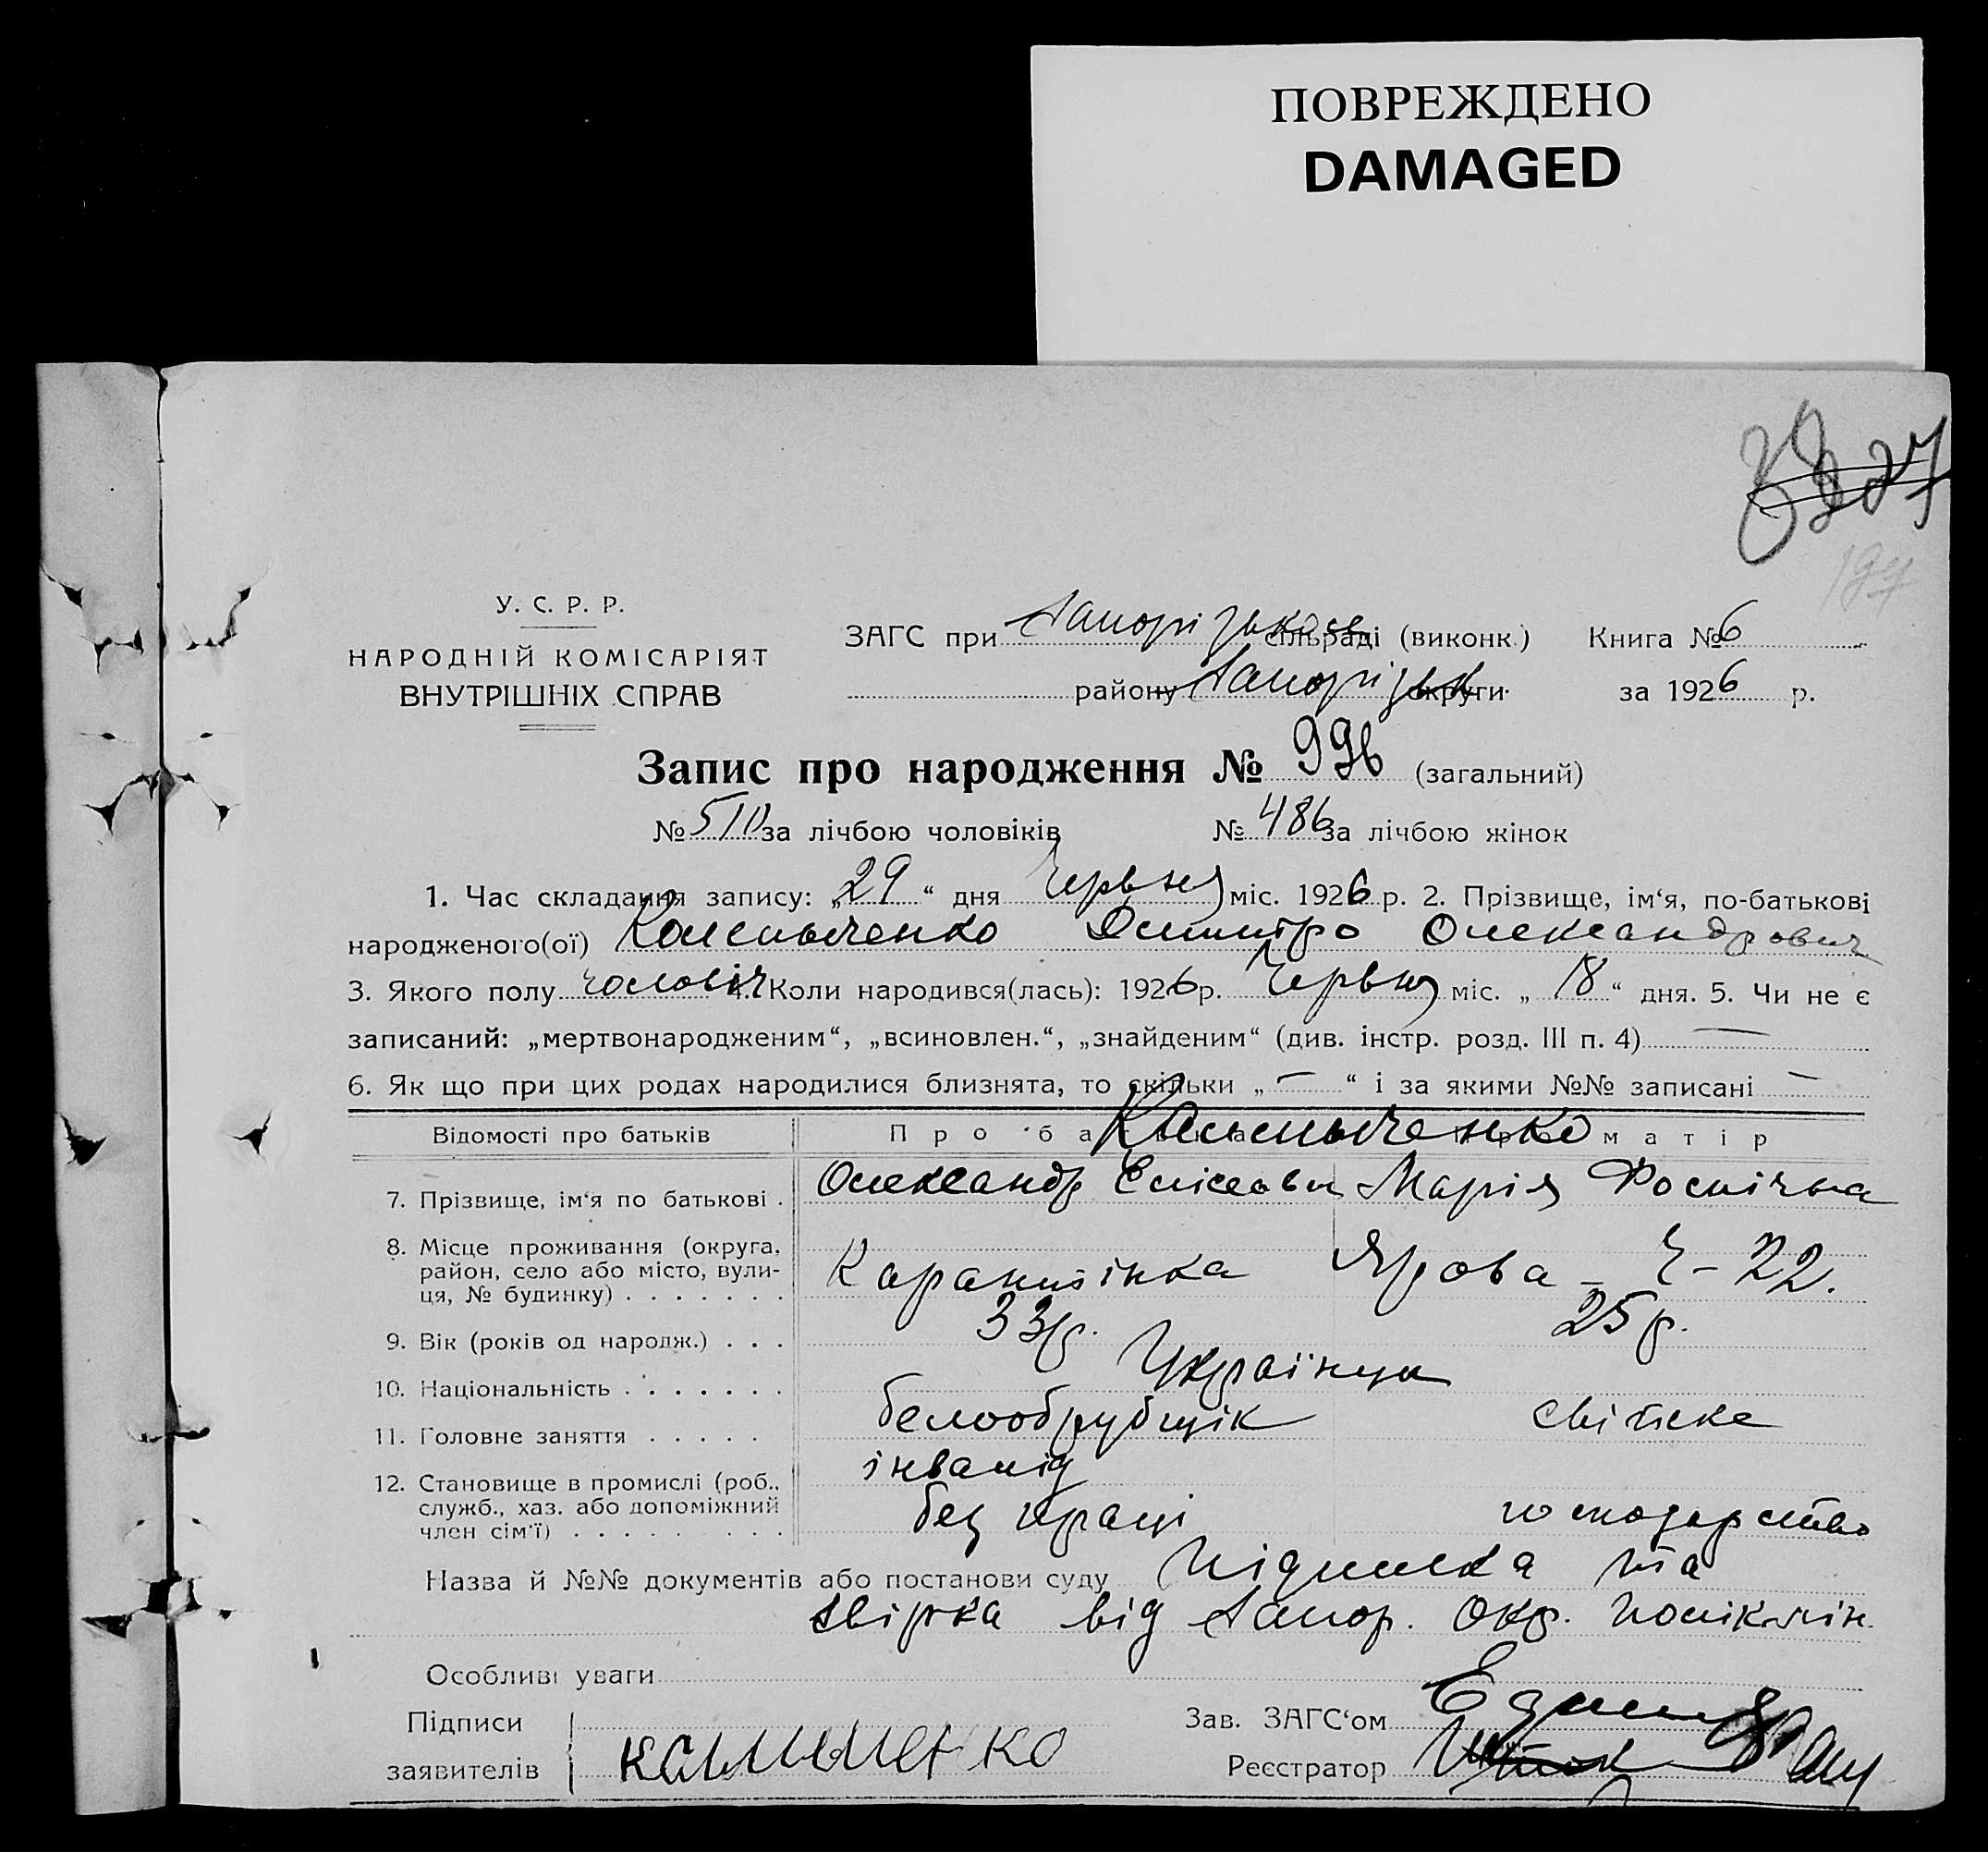 ПОВРЕЖДЕНО
DAMAGED
197
У. С. Р. Р.
НАРОДНІЙ КОМІСАРІЯТ
ВНУТРІШНІХ СПРАВ
ЗАГС при Запорізькою сільраді (виконк.) Книга № 6
району Запорізьк округи за 1926 р.
Запис про народження № 996 (загальний)
№ 510 за лічбою чоловіків № 486 за лічбою жінок
1. Час складання запису: „29“ дня Червня міс. 1926 р. 2. Прізвище, ім‘я, по-батькові
народженого(ої) Дмитро Олександрович
3. Якого полу чоловіч 4. Коли народився(лась): 1926 р. Червня міс. „18“ дня. 5. Чи не є
записаний: „мертвонародженим“, „всиновлен.“, „знайденим“ (див. інстр. розд. III п. 4) —
6. Як що при цих родах народилися близнята, то скільки „—“ і за якими №№ записані —
Відомості про батьків Про батька Про матір
7. Прізвище, ім‘я по батькові . Олександр Марія
8. Місце проживання (округа,
район, село або місто, вули-
ця, № будинку) . . . . . . . Карантінка Ярова - 22.
9. Вік (років од народж.) . . . 33 р. 25 р.
10. Національність . . . . . . . Українци
11. Головне заняття . . . . . світске
12. Становище в промислі (роб.,
служб., хаз. або допоміжний
член сім‘ї) . . . . . . . . інвалід
без праці господарство
Назва й №№ документів або постанови суду підписка та
звірка від Запор. Окр. поліклін.
Особливі уваги
Підписи
заявителів
Зав. ЗАГС‘ом
Реєстратор